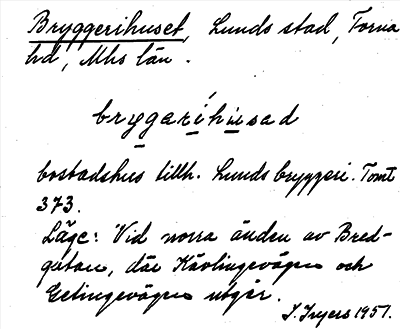 Bryggerihuset, Lunds stad, Torna
hd, Mhs län.
bryggarihusad
bostadshus tillh. Lunds bryggeri. Tomt
373.
Läge: Vid norra änden av Bred-
gatan, där Kävlingevägen och
Getingevägen utgår.
I. Ingers 1951.